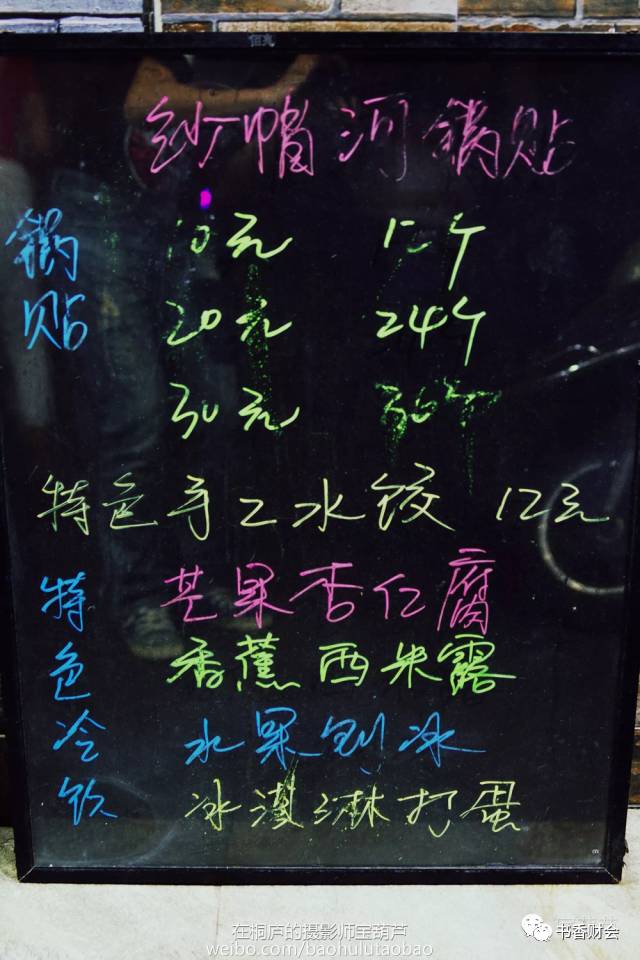 纱帽河锅贴
锅贴
10元 12个
20元 24个
30元 36个
特色手工水饺 12元
特色冷饮
芒果杏仁腐
香蕉西米露
水果刨冰
冰淇淋打蛋
在桐庐的摄影师宝葫芦
weibo.com/baohulutaobao
书香财会